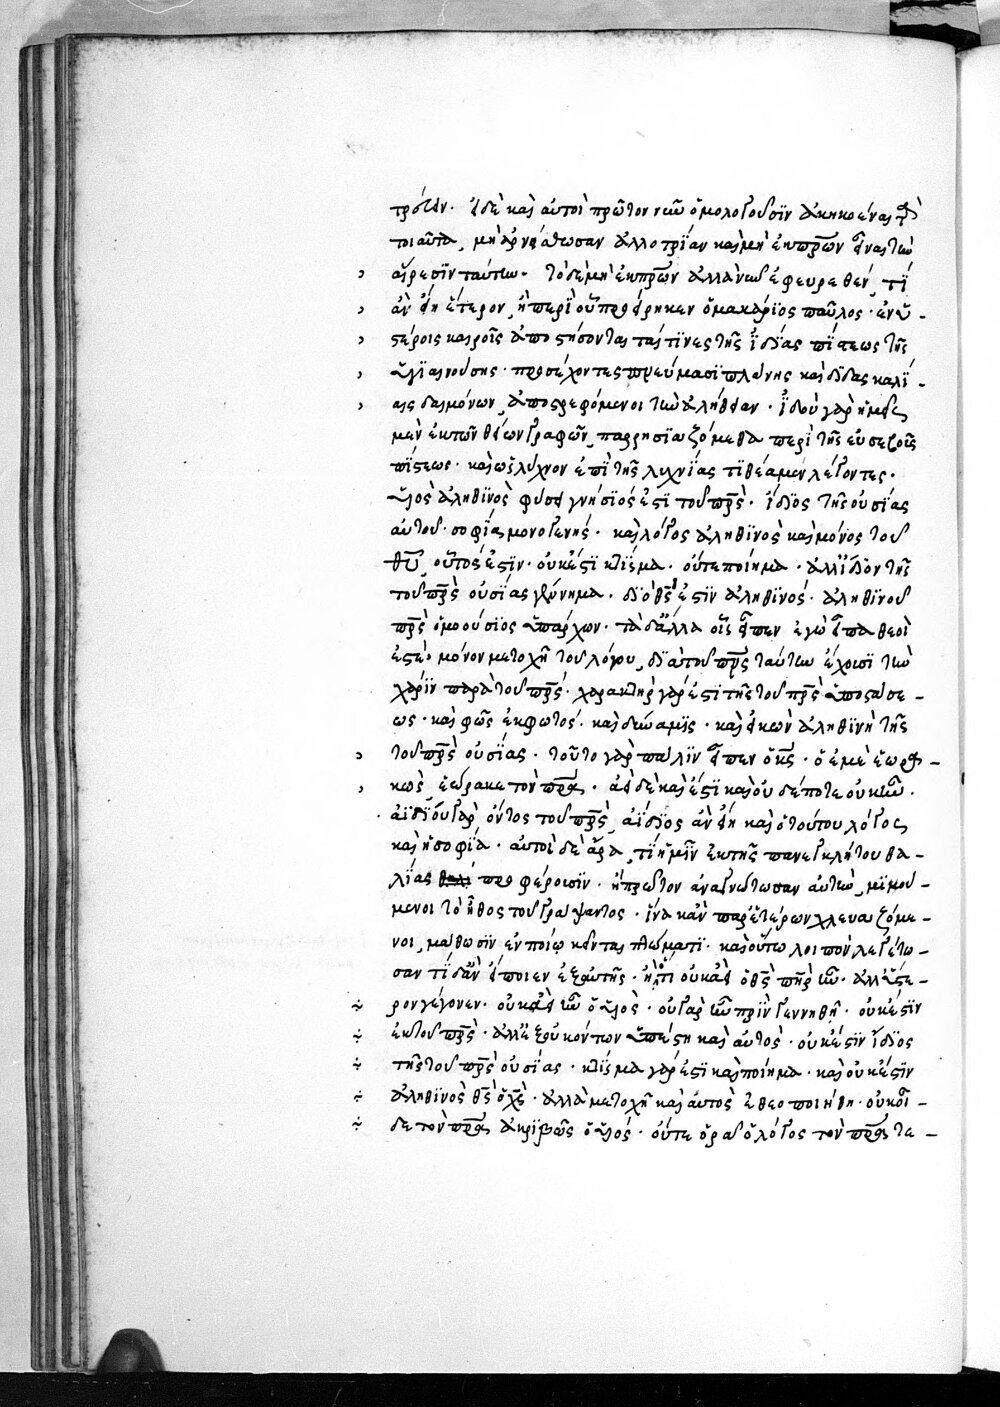 τρόπον· εἰ δὲ καὶ αὐτοὶ πρῶτον νῦν ὁμολογοῦσιν ἀκηκοέναι τὰ
τοιαῦτα, μὴ ἀρνείσθωσαν ἀλλοτρίαν καὶ μὴ ἐκ πρῶν εἶναι τὴν
αἵρεσιν ταύτην· τὸ δὲ μὴ ἐκ πρῶν ἀλλὰ νῦν ἐφευρεθέν, τί
ἂν εἴη ἕτερον, ἢ περὶ οὗ προείρηκεν ὁ μακάριος παῦλος· ἐν ὑ-
στέροις καιροῖς ἀποστήσονταί τινες τῆς
ὑγιαινούσης πίστεως· προσέχοντες πνεύμασι πλάνης καὶ διδασκαλί-
αις δαιμόνων, ἀποστρεφόμενοι τὴν ἀλήθειαν· ἰδοὺ γὰρ ἡμεῖς
μὲν ἐκ τῶν θείων γραφῶν παρρησιαζόμεθα περὶ τῆς εὐσεβοῦς
πίστεως· καὶ ὡς λύχνον ἐπὶ τῆς λυχνίας τίθεαμεν λέγοντες·
υἱὸς ἀληθινὸς φύσει γνήσιός ἐστι τοῦ πρς· ἴδιος τῆς οὐσίας
αὐτοῦ· σοφία μονογενής· καὶ λόγος ἀληθινὸς καὶ μόνος τοῦ
θυ οὗτός ἐστιν· οὐκ ἔστι κτίσμα· οὔτε ποίημα· ἀλλ' ἴδιον τῆς
τοῦ πρς οὐσίας γέννημα· διὸ θς ἐστιν ἀληθινός· ἀληθινοῦ
πρς ὁμοούσιος ὑπάρχων· τὰ δ' ἄλλα οἷς εἶπεν ἐγὼ εἶπα θεοί
ἐστε· μόνον μετοχῇ τοῦ λόγου, διὰ τοῦ πνς ταύτην ἔχουσι τὴν
χάριν παρὰ τοῦ πρς· χαρακτὴρ γάρ ἐστι τῆς τοῦ πρς ὑποστάσε-
ως· καὶ φῶς ἐκ φωτός· καὶ δύναμις· καὶ εἰκὼν ἀληθινὴ τῆς
τοῦ πρς οὐσίας· τοῦτο γὰρ πάλιν εἶπεν ὁ κς· ὁ ἐμὲ ἑωρα-
κὼς ἑώρακε τὸν πρα· ἀεὶ δὲ καὶ ἔστι καὶ οὐδέποτε οὐκ ἦν·
ἀϊδίου γὰρ ὄντος τοῦ πρς ἀΐδιος ἂν εἴη καὶ ὁ τούτου λόγος
καὶ ἡ σοφία· αὐτοὶ δὲ ἄρα, τί ἡμῖν ἐκ τῆς πανεγκλήτου θα-
λίας προφέρουσιν· ἢ πρῶτον ἀναγνώτωσαν αὐτὴν, μιμού-
μενοι τὸ ἦθος τοῦ γράψαντος· ἵνα κἂν παρ' ἑτέρων χλευαζόμε-
νοι, μάθωσιν ἐν ποίῳ κεῖνται πτώματι· καὶ οὕτω λοιπὸν λεγέτω-
σαν τί δ' ἂν εἴποιεν ἐξ αὐτῆς· ἢ ὅτι οὐκ ἀεὶ ὁ θς πηρ ἦν· ἀλλ' ὕστε-
ρον γέγονεν· οὐκ ἀεὶ ἦν ὁ υἱός· οὐ γὰρ ἦν πρὶν γεννηθῇ· οὐκ ἔστιν
ἐκ τοῦ πρς· ἀλλ' ἐξ οὐκ ὄντων ὑπέστη καὶ αὐτός· οὐκ ἔστιν ἴδιος
τῆς τοῦ πρς οὐσίας· κτίσμα γάρ ἐστι καὶ ποίημα· καὶ οὐκ ἔστιν
ἀληθινὸς θς ὁ χς· ἀλλὰ μετοχῇ καὶ αὐτὸς ἐθεοποιήθη· οὐκ οἶ-
δε τὸν πρα ἀκριβῶς ὁ υἱός· οὔτε ὁρᾷ ὁ λόγος τὸν πρα τε-